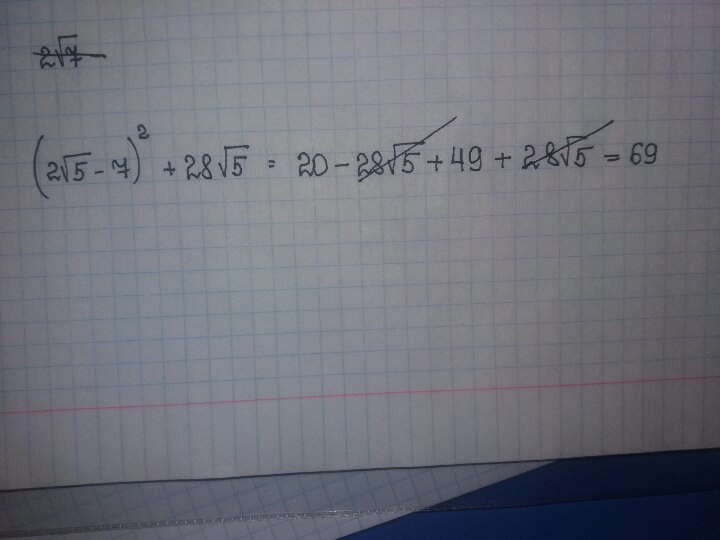 2√7
(2√5 - 7)² + 28√5 = 20 - 28√5 + 49 + 28√5 = 69